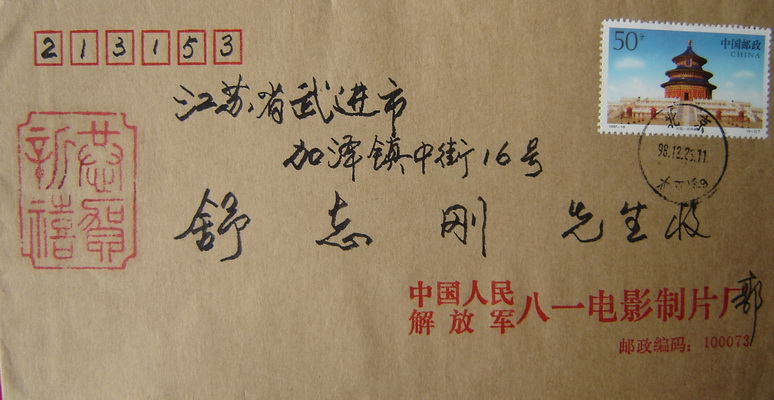 213153
50分 中国邮政
CHINA
江苏省武进市
加泽镇中街16号
北京
98.12.25.11
恭贺
新禧
舒志刚 先生收
中国人民
解放军
八一电影制片厂 郭
邮政编码：100073